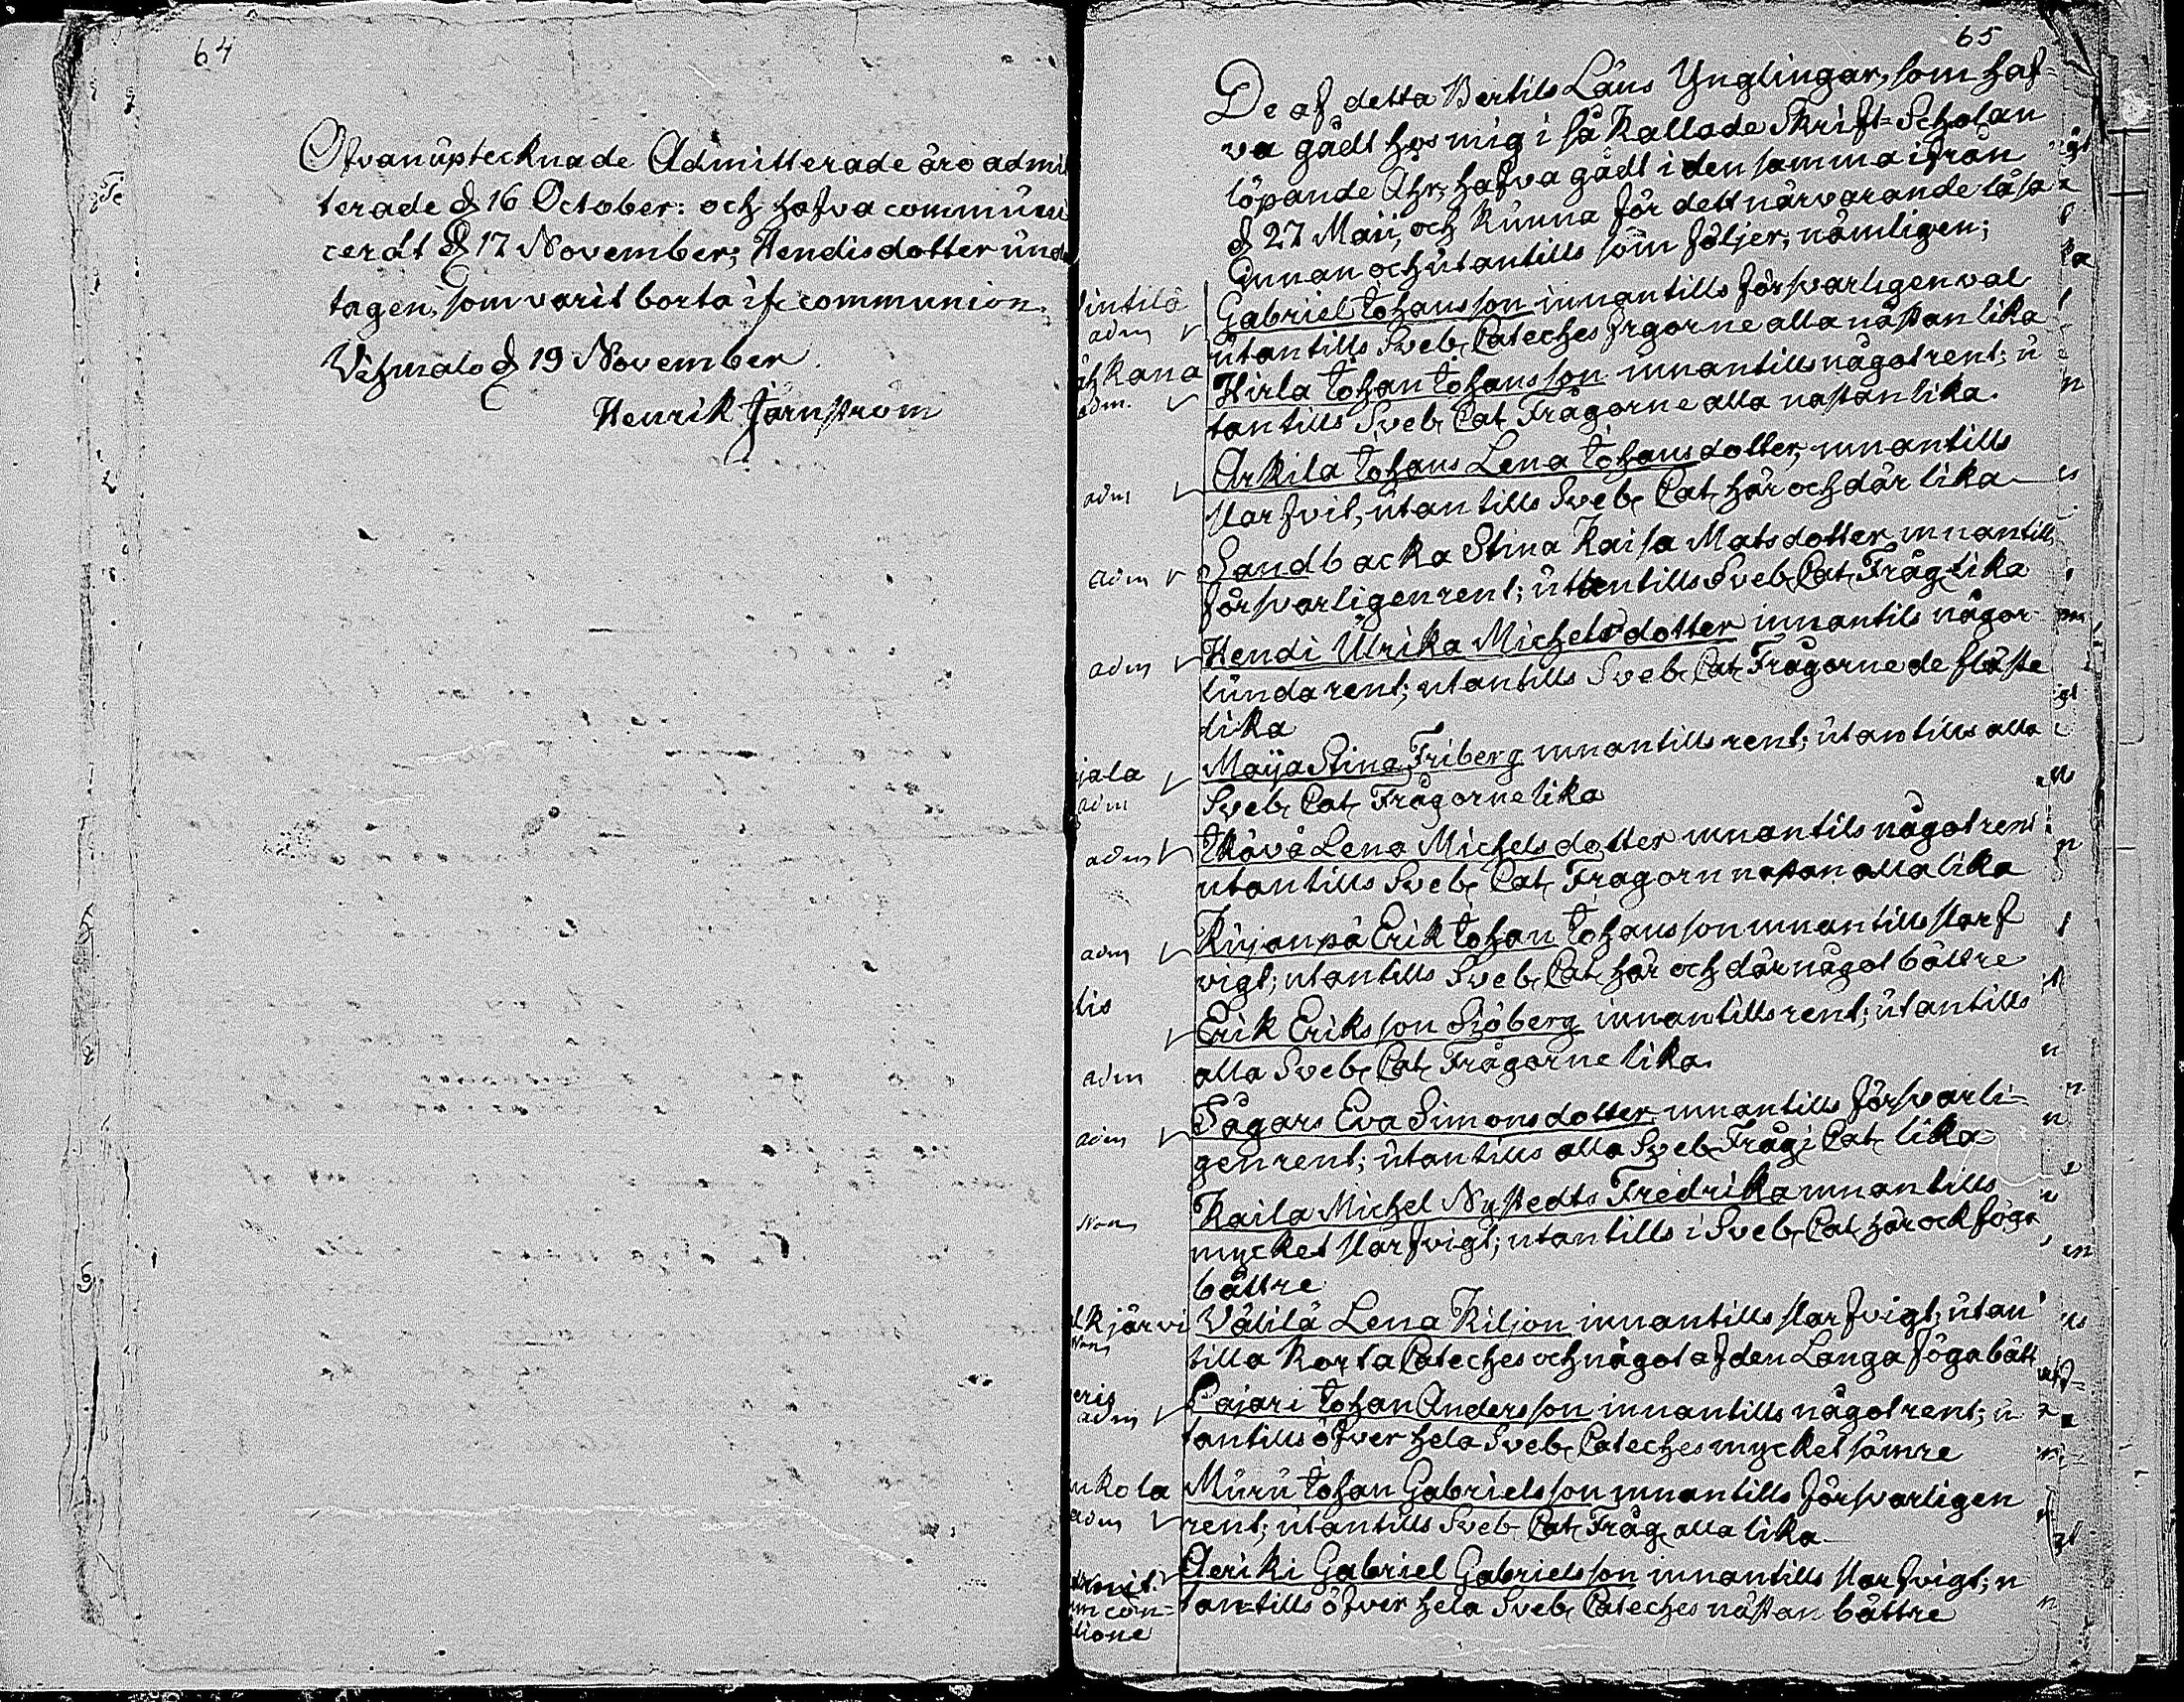 64
Ofvanuptecknade Admitterade äro admit
terade d 16 October: och hafva communi
cerat d 17 November; Hendis dotter und
tagen, som varit borta ifr communion.
Vehmalo d 19 November.
Henrik Järnström
65
De af detta Bertils Läns Ynglingar, som haf-
va gådt hos mig i så kallade Skrift-Scholan
löpande Åhr, hafva gådt i den samma ifrån
d 27 Maii, och kunna för dett närvarande läsa
innan och utantills som följer, nämligen;
Gabriel Johansson innantills försvarligen väl
adm utantills Sveb. Cateches frgorne alla nästan lika
kana Hirla Johan Johansson innantills något rent; u
adm. tantills Sveb. Cat. Frågorne alla nästan lika.
Arkila Johans Lena Johansdotter, innantills
adm slarfvit, utantills Sveb. Cat. här och där lika
adm Sandbacka Stina Kaisa Matsdotter innantills
försvarligen rent; utantills Sveb. Cat. Fråg. lika
adm Hendi Ulrika Michelsdotter innantils någor
lunda rent; utantills Sveb. Cat. Frågorne de fläste
lika
jala Maija Stina Friberg innantills rent; utantills alla
adm Sveb. Cat. Frågorne lika
adm Lena Michelsdotter innantils något rent
utantills Sveb. Cat. Frågorn nästan alla lika
adm Kirjanpä Erik Johan Johansson innantills slarf
vigt; utantills Sveb. Cat. här och där något bättre
tis
Erik Eriksson Sjöberg innantills rent; utantills
adm alla Sveb. Cat. Frågorne lika.
adm Sågars Eva Simonsdotter innantills försvarli-
gen rent; utantills alla Sveb. Fråg i Cat. lika
Non Kaila Michel Nystedts Fredrika innantills
mycket slarfvigt; utantills i Sveb. Cat. här ock föga
bättre
kjärvi Välilä Lena Kiljon innantills slarfvigt; utan
Non tills korta Cateches och något af den Långa föga bätt
eris Pajari Johan Andersson innantills något rent; u
adm tantills öfver hela Sveb. Cateches mycket sämre
nkola Muru Johan Gabrielsson innantills försvarligen
adm rent; utantills Sveb. Cat. Fråg. alla lika
Aeriki Gabriel Gabrielsson innantills slarfvigt; u
con- tantills öfver hela Sveb. Cateches nästan bättre
tione